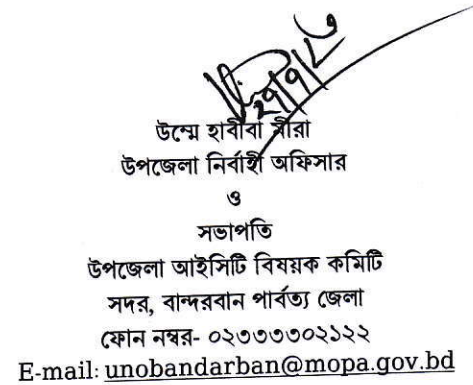 ২৭/৭/২৩
উম্মে হাবীবা মীরা
উপজেলা নির্বাহী অফিসার
ও
সভাপতি
উপজেলা আইসিটি বিষয়ক কমিটি
সদর, বান্দরবান পার্বত্য জেলা
ফোন নম্বর- ০২৩৩৩৩০২১২২
E-mail: unobandarban@mopa.gov.bd